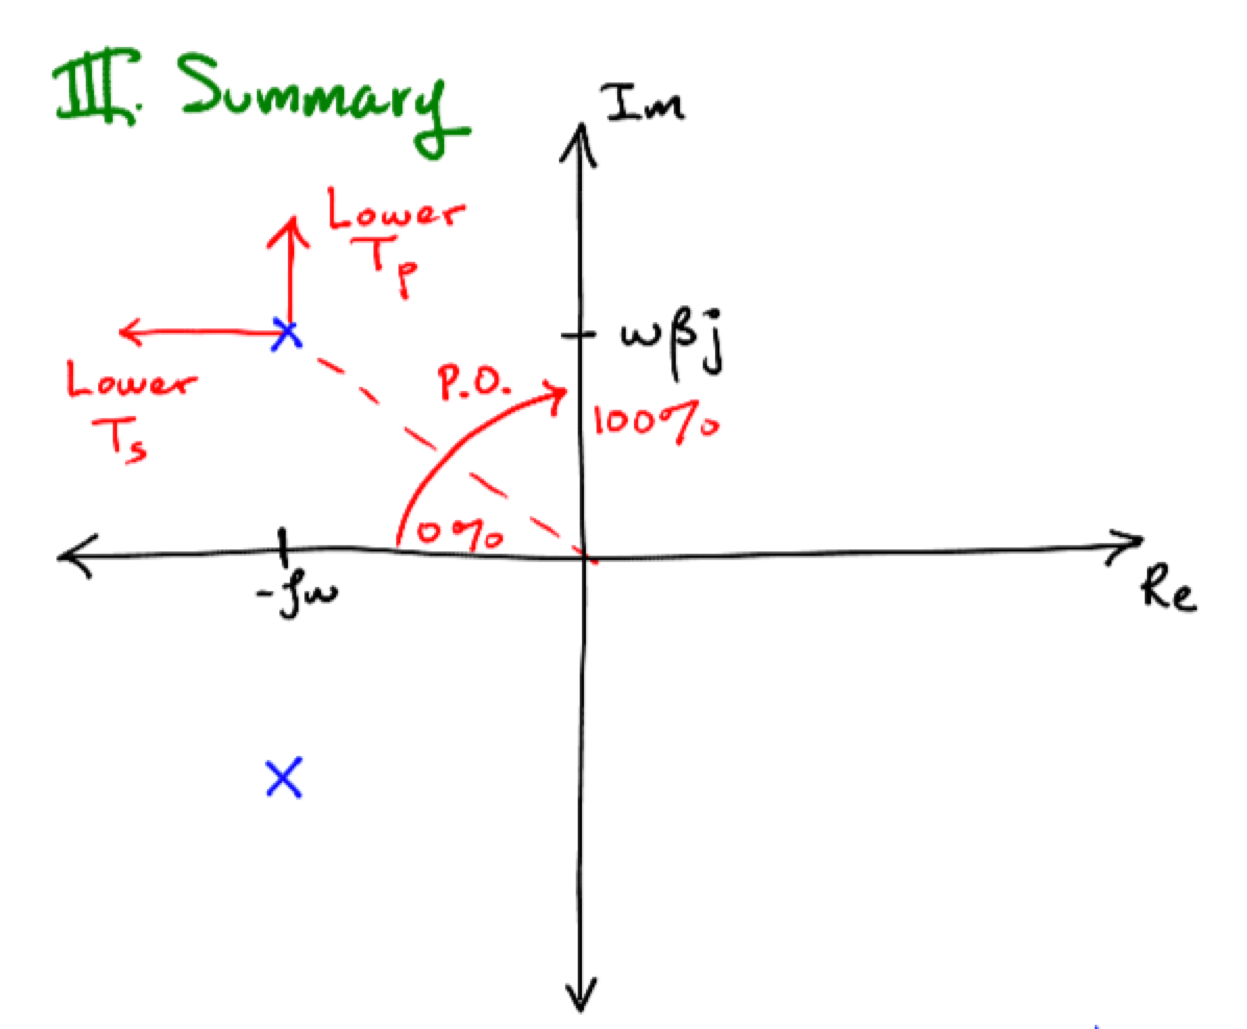 III. Summary
Im
Lower
Tp
ωβj
Lower
Ts
P.O.
100%
0%
-ζω
Re